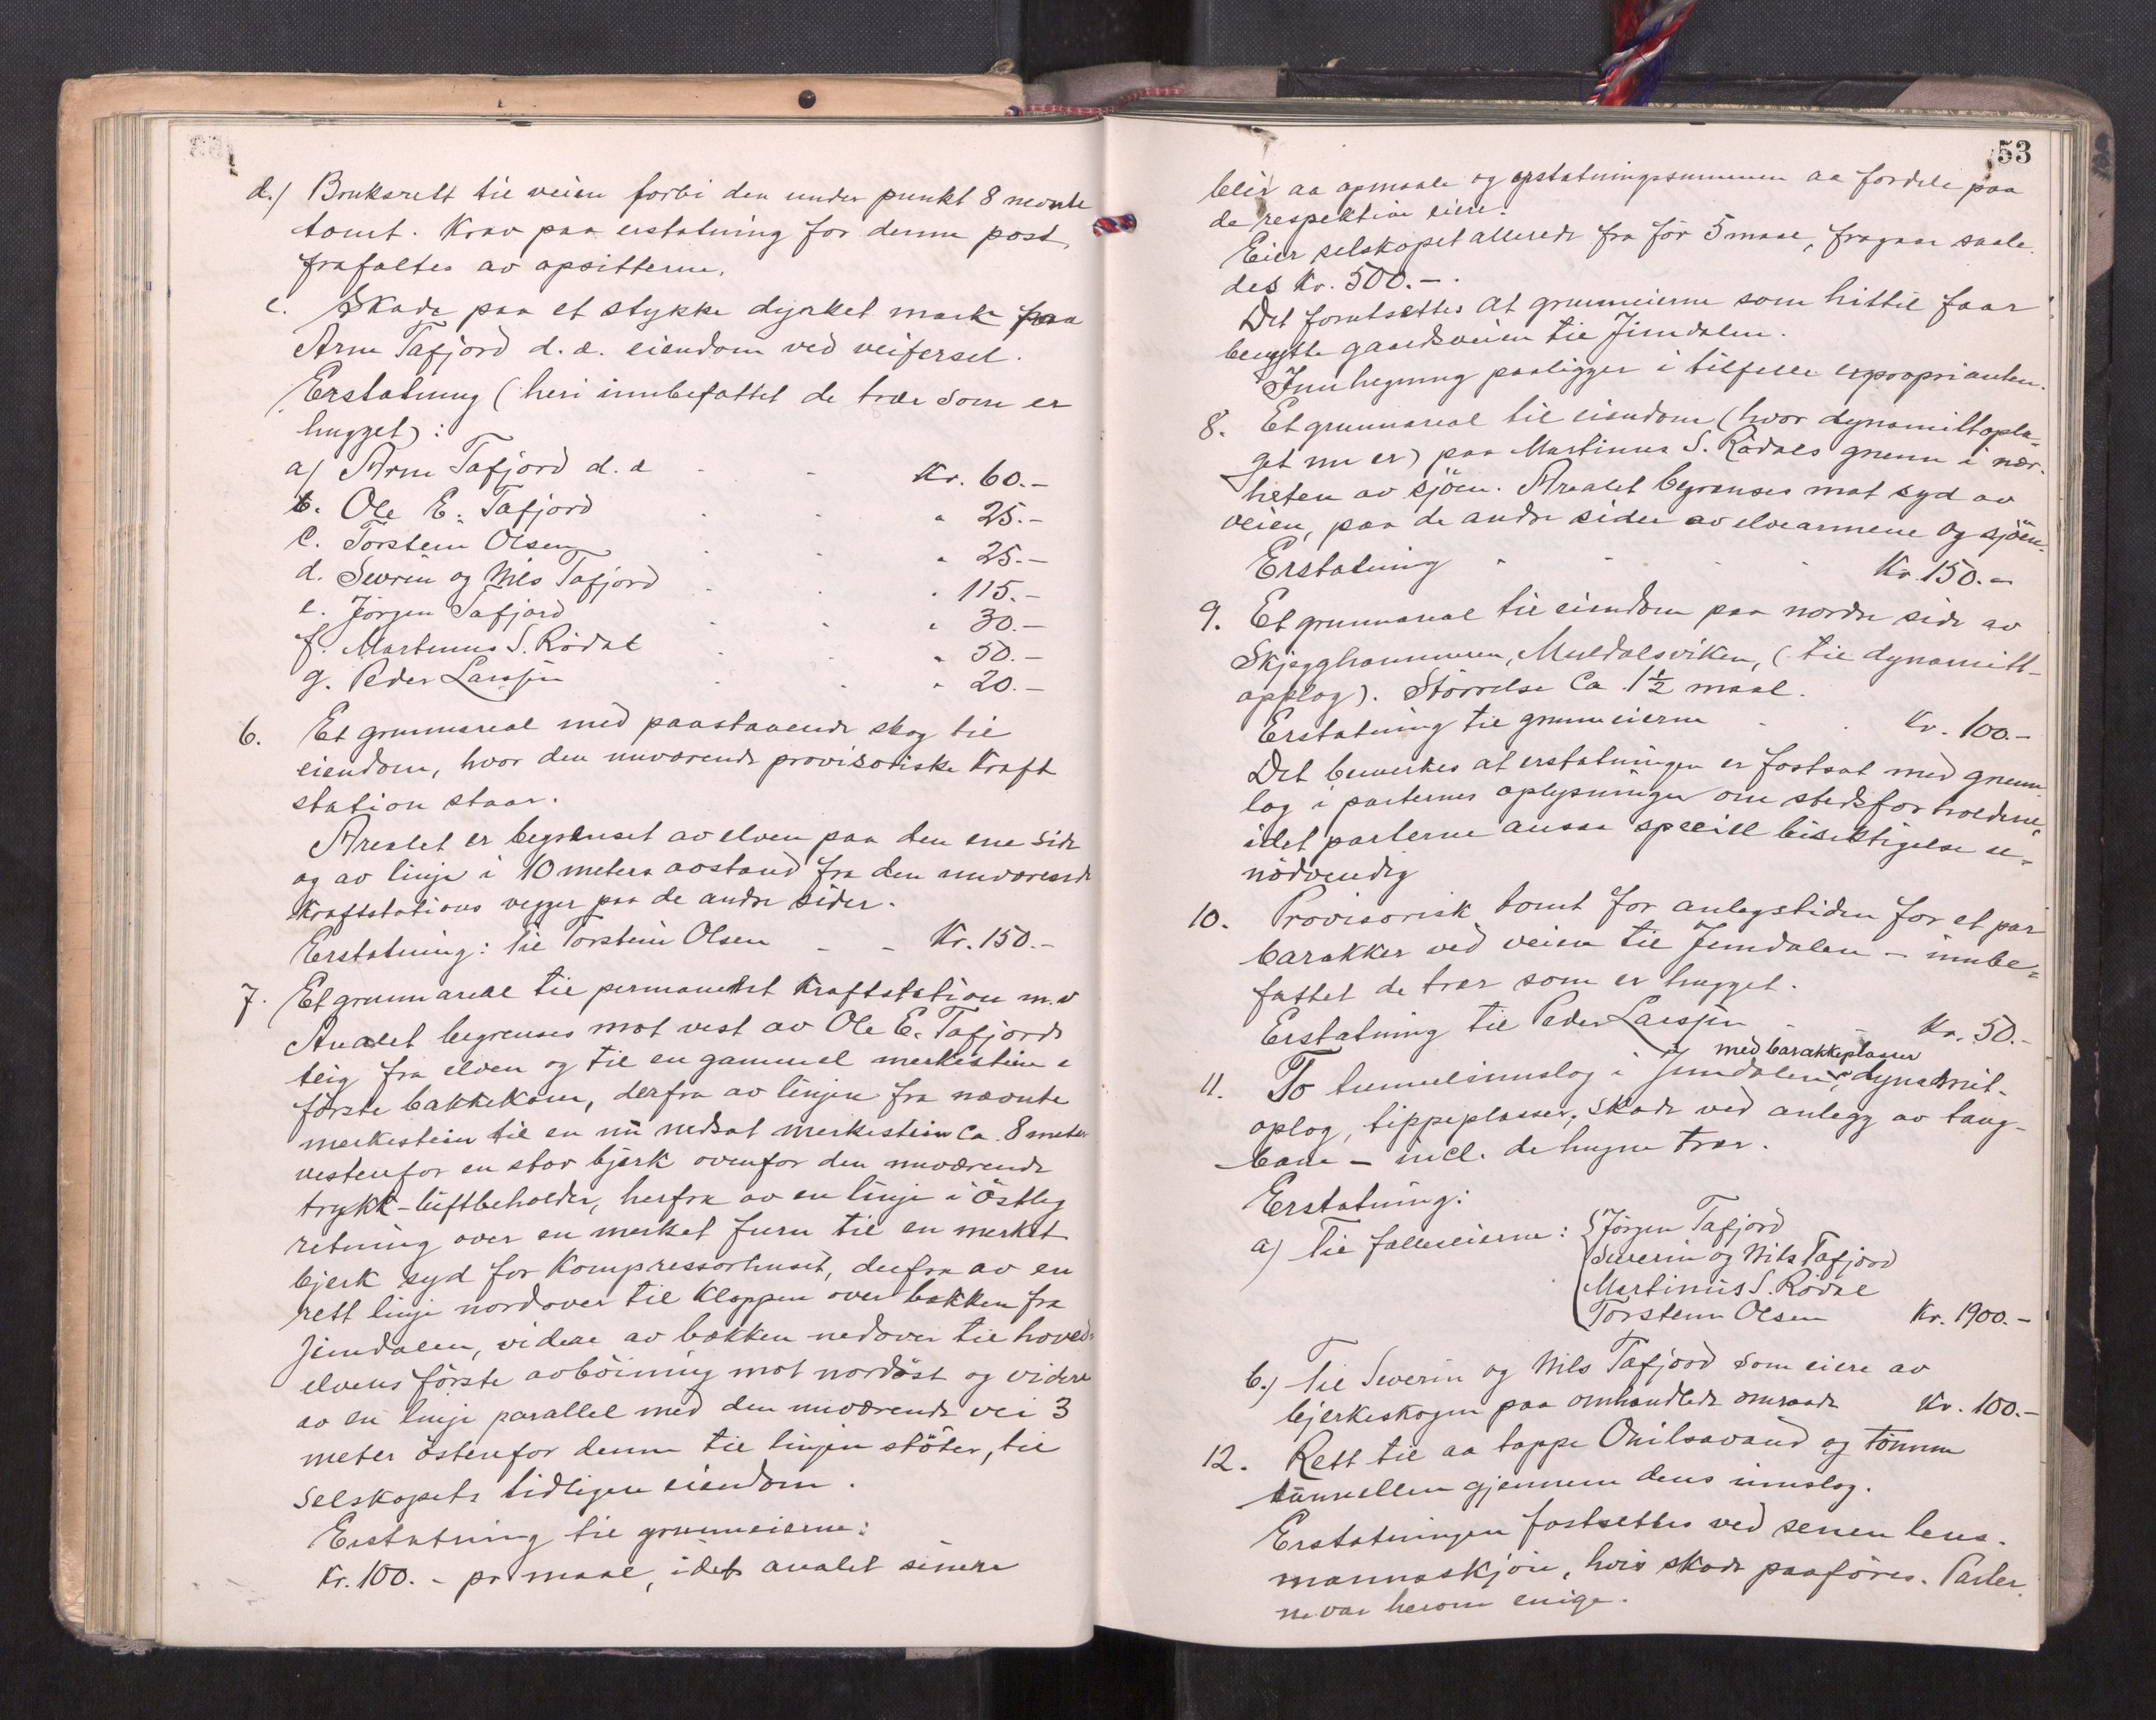 d.) Bruksrett til veien forbi den under punkt 8 nevnte
tomt. Krav paa erstatning for denne post
frafaltes av opsitterne.
e. Skade paa et stykke dyrket mark paa
Arne Tafjord d. e. eiendom ved veiferset.
Erstatning (heri innbefattet de trær som er
hugget):
a) Arne Tafjord d. e - - Kr. 60.-
b. Ole E. Tafjord - - " 25.-
c. Torstein Olsen - - " 25.-
d. Severin og Nils Tafjord - - " 115.-
e. Jörgen Tafjord - - " 30.-
f. Martinus S. Rödal - - " 50.-
g. Peder Larsen - - " 20.-
6. Et grunnareal med paastaaende skog til
eiendom, hvor den nuværende provisoriske Kraft
station staar.
Arealet er begrenset av elven paa den ene side
og av linje i 10 meters avstand fra den nuværende
Kraftstations vegger paa de andre sider.
Erstatning: til Torstein Olsen - - Kr. 150.-
7. Et grunnareal til permanent Kraftstation m.v
Arealet begrenses mot vest av Ole E. Tafjords
teig fra elven og til en gammel merkestein i
förste bakkekam, derfra av linjen fra nevnte
merkestein til en nu nedsat merkestein ca. 8 meter
vestenfor en stor bjerk ovenfor den nuværende
trykk-luftbeholder, herfra av en linje i östlig
retning over en merket furu til en merket
bjerk syd for Kompressorhuset, derfra av en
rett linje nordover til kloppen over bekken fra
Jimdalen, videre av bekken nedover til hoved-
elvens förste avböining mot nordöst og videre
av en linje parallel med den nuværende vei 3
meter östenfor denne til linjen stöter, til
selskapets tidligere eiendom.
Erstatning til grunneierne:
Kr. 100.- pr maal, idet arealet sinere
53
blir aa opmaale og erstatningssummen aa fordele paa
de respektive eiere.
Eier selskapet allerede fra för 5 maal, fragaar saale-
des Kr. 500.-.
Det forutsettes at grunneierne som hittil faar
benytte gaardsveien til Jimdalen.
Innhegning paaligger i tilfelle exproprianten.
8. Et grunnareal til eiendom (hvor dynamittopla-
get nu er) paa Martinus S. Rödals grunn i nær-
heten av sjöen. Arealet begrenses mot syd av
veien, paa de andre sider av elvearmene og sjöen.
Erstatning - - - - Kr. 150.-
9. Et grunnareal til eiendom paa nordre side av
Skjegghammeren, Muldalsviken, (til dynamitt-
opplag). Störrelse ca. 1½ maal.
Erstatning til grunneierne - - Kr. 100.-
Det bemerkes at erstatningen er fastsat med grunn-
lag i parternes oplysninger om stedsforholdene,
idet parterne ansaa speciell besiktigelse u-
nödvendig
10. Provisorisk tomt for anlegstiden for et par
barakker ved veien til Jimdalen - innbe-
fattet de trær som er hugget.
Erstatning til Peder Larsen - - Kr. 50.-
med barakkeplasser
11. To tunnelinnslag i Jimdalen, dynamit-
oplag, tippeplasser, skade ved anlegg av taug-
bane - incl. de hugne trær.
Erstatning:
a) Til felleseierne: Jörgen Tafjord
Severin og Nils Tafjord
Martinus S. Rödal
Torstein Olsen Kr. 1900.-
b.) Til Severin og Nils Tafjord som eiere av
bjerkeskogen paa omhandlede omraade Kr. 100.-
12. Rett til aa tappe Onilsavand og tömme
tunnellen gjennem dens innslag.
Erstatningen fastsettes ved senen lens-
mannsskjön, hvis skade paaföres. Parter
ne var herom enige.